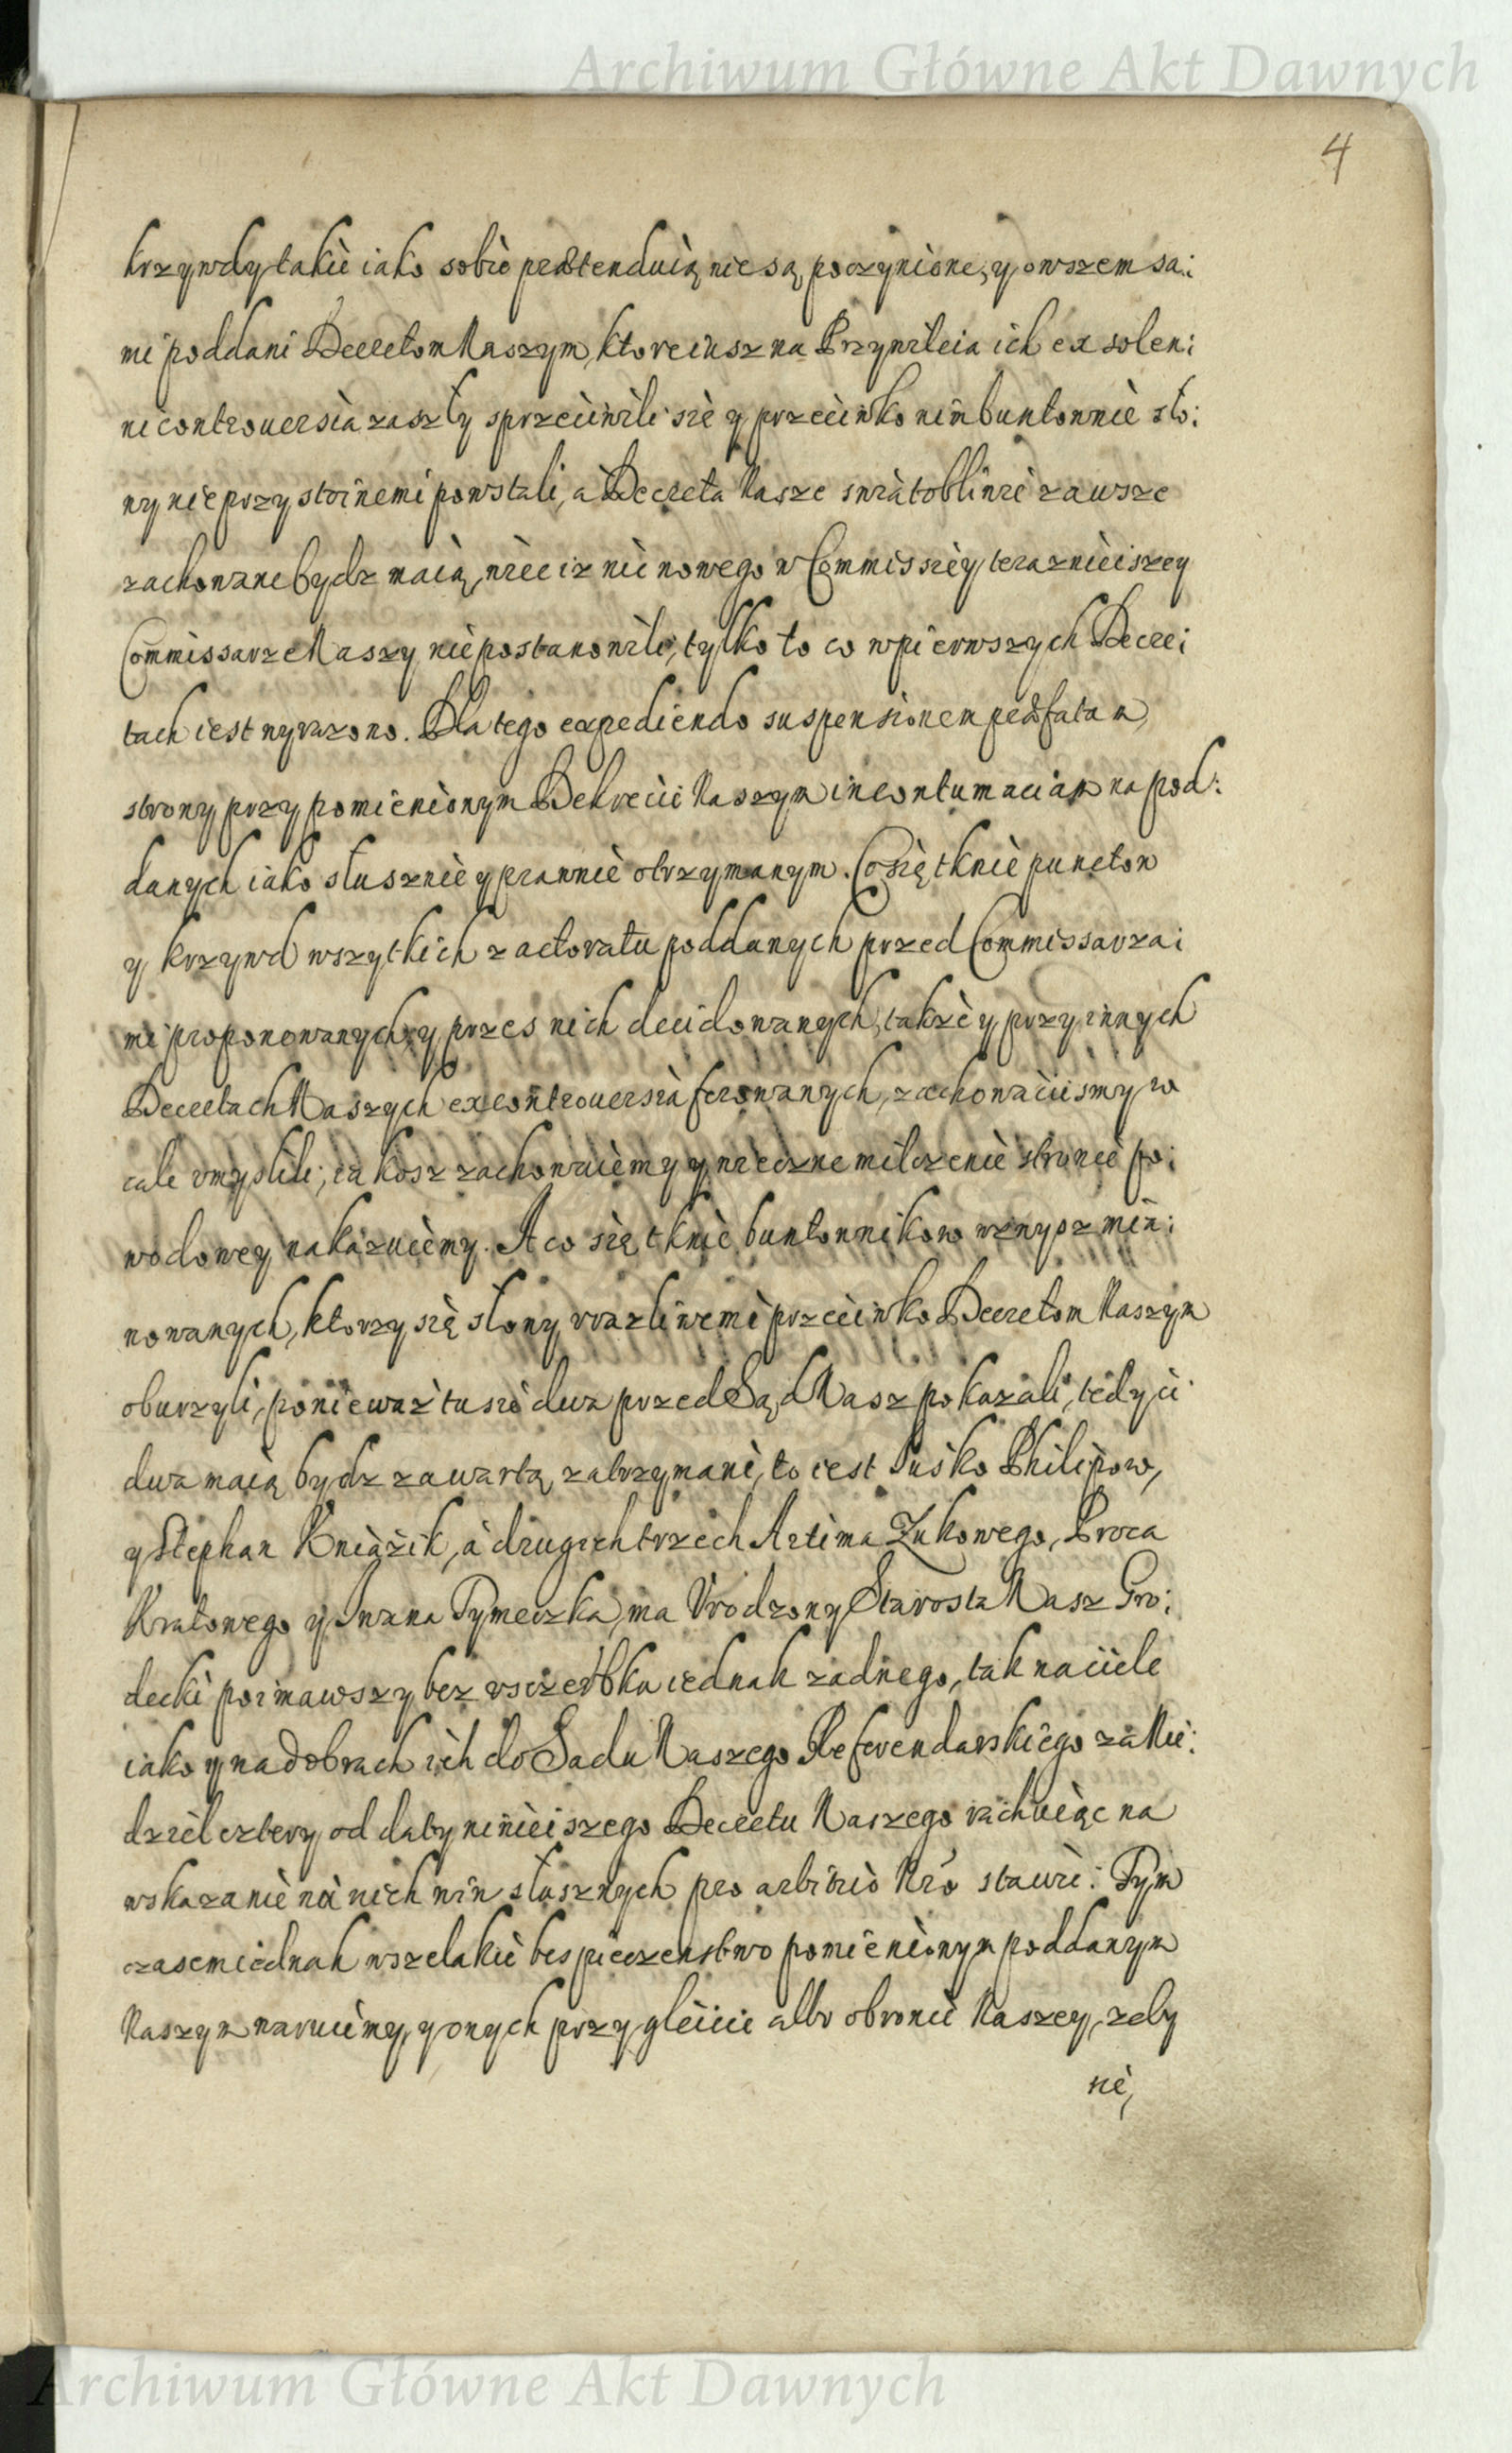 Archiwum Główne Akt Dawnych
4
krzywdy takie iako sobie prætenduią nie są poczynione, y owszem sa:
mi poddani Decretom Naszym, ktore iusz na Przywileia ich ex solen:
ni controuersia zaszły sprzeciwili się y przeciwko nim buntownie sło:
wy nieprzystoinemi powstali, a Decreta Nasze swiątobliwie zawsze
zachowane bydz maią, wiec iz nic nowego w Commissiey teraznieiszey
Commissarze Naszy nie postanowili, tylko to co w pierwszych Decre:
tach iest wyrazono. Dla tego expediendo suspensionem præfatam,
strony przy pomienionym Dekrecie Naszym in contumaciam na pod:
danych iako słusznie y prawnie otrzymanym. Co się tknie punctow
y krzywd wszytkich z actoratu poddanych przed Commissarza:
mi proponowanych, y przes nich decidowanych, takze y przy innych
Decretach Naszych ex controuersia ferowanych, zachowaciesmy w
cale vmyslili, iakosz zachowuiemy y wieczne milczenie stronie po:
wodowey nakazuiemy. A co się tknie buntownikow wzwysz mia:
nowanych, ktorzy się słowy vrazliwemi przeciwko Decretom Naszym
oburzyli, poniewaz tu sie dwa przed Sąd Nasz pokazali, tedy ci
dwa maią bydz za wartą zatrzymani, to iest Suśko Philipow,
y Stephan Kniażik, a drugich trzech Artima Zukowego, Proca
Kratowego y Iwana Tymeczka, ma Vrodzony Starosta Nasz Gro:
decki poimawszy bez vsczerbku iednak zadnego, tak na ciele
iako y na dobrach ich do Sadu Naszego Referendarskiego za Nie:
dziel cztery od daty ninieiszego Decretu Naszego rachuiąc na
wskazanie na nich win słusznych pro arbitrio Nro stawic: Tym
czasem iednak wszelakie bespieczenstwo pomienionym poddanym
Naszym waruiemy, y onych przy gleicie albo obronie Naszey, zeby
sie,
Archiwum Główne Akt Dawnych